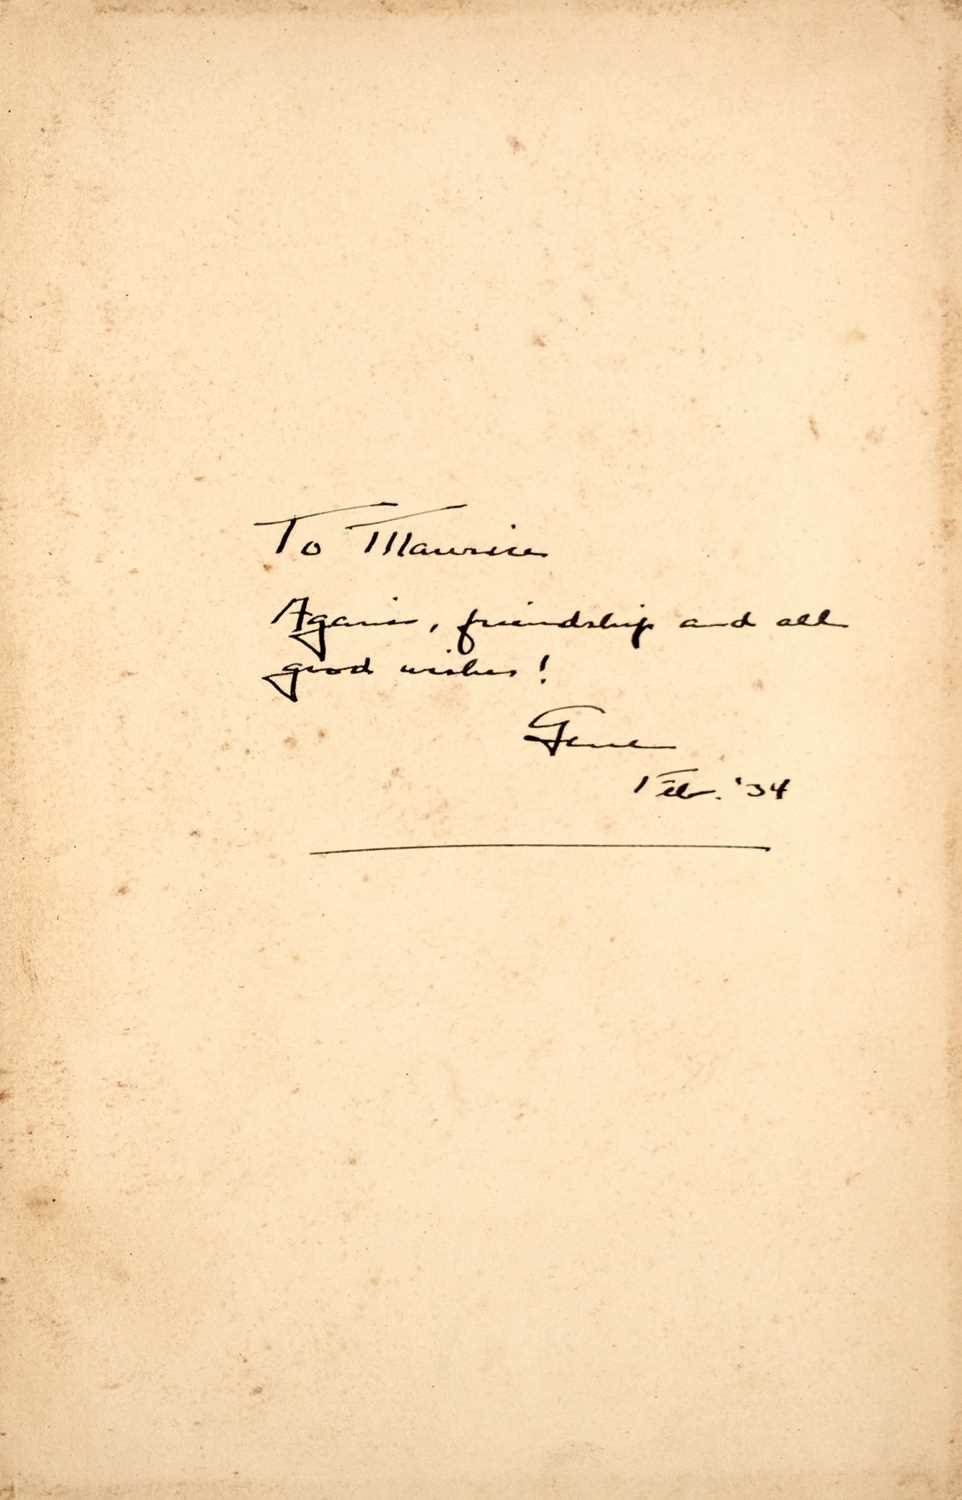 To Maurice
Again, friendship and all
good wishes!
Gene
Feb. '34